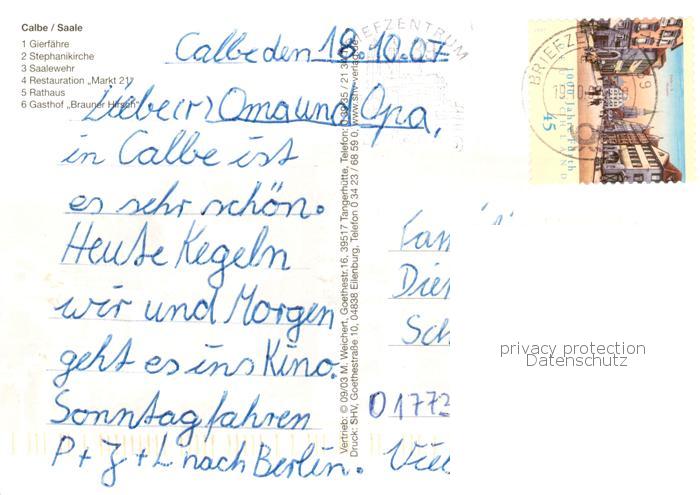 Calbe / Saale
1 Gierfähre
2 Stephanikirche
3 Saalewehr
4 Restauration „Markt 21"
5 Rathaus
6 Gasthof „Brauner Hirsch"
Calbe den 18.10.07
Liebe(r) Oma und Opa,
in Calbe ist
es sehr schön.
Heute Kegeln
wir und Morgen
geht es ins Kino.
Sonntag fahren
P + J + L nach Berlin.
Vertrieb: © 09/03 M. Weichert, Goethestr.16, 39517 Tangerhütte, Telefon:
Druck: SHV, Goethestraße 10, 04838 Eilenburg, Telefon 0 34 23 / 68 59 0, www.shv-verlag.de
BRIEFZENTRUM
45
1000 Jahre Fürth
Fam
Dier
Sch
01772
privacy protection
Datenschutz